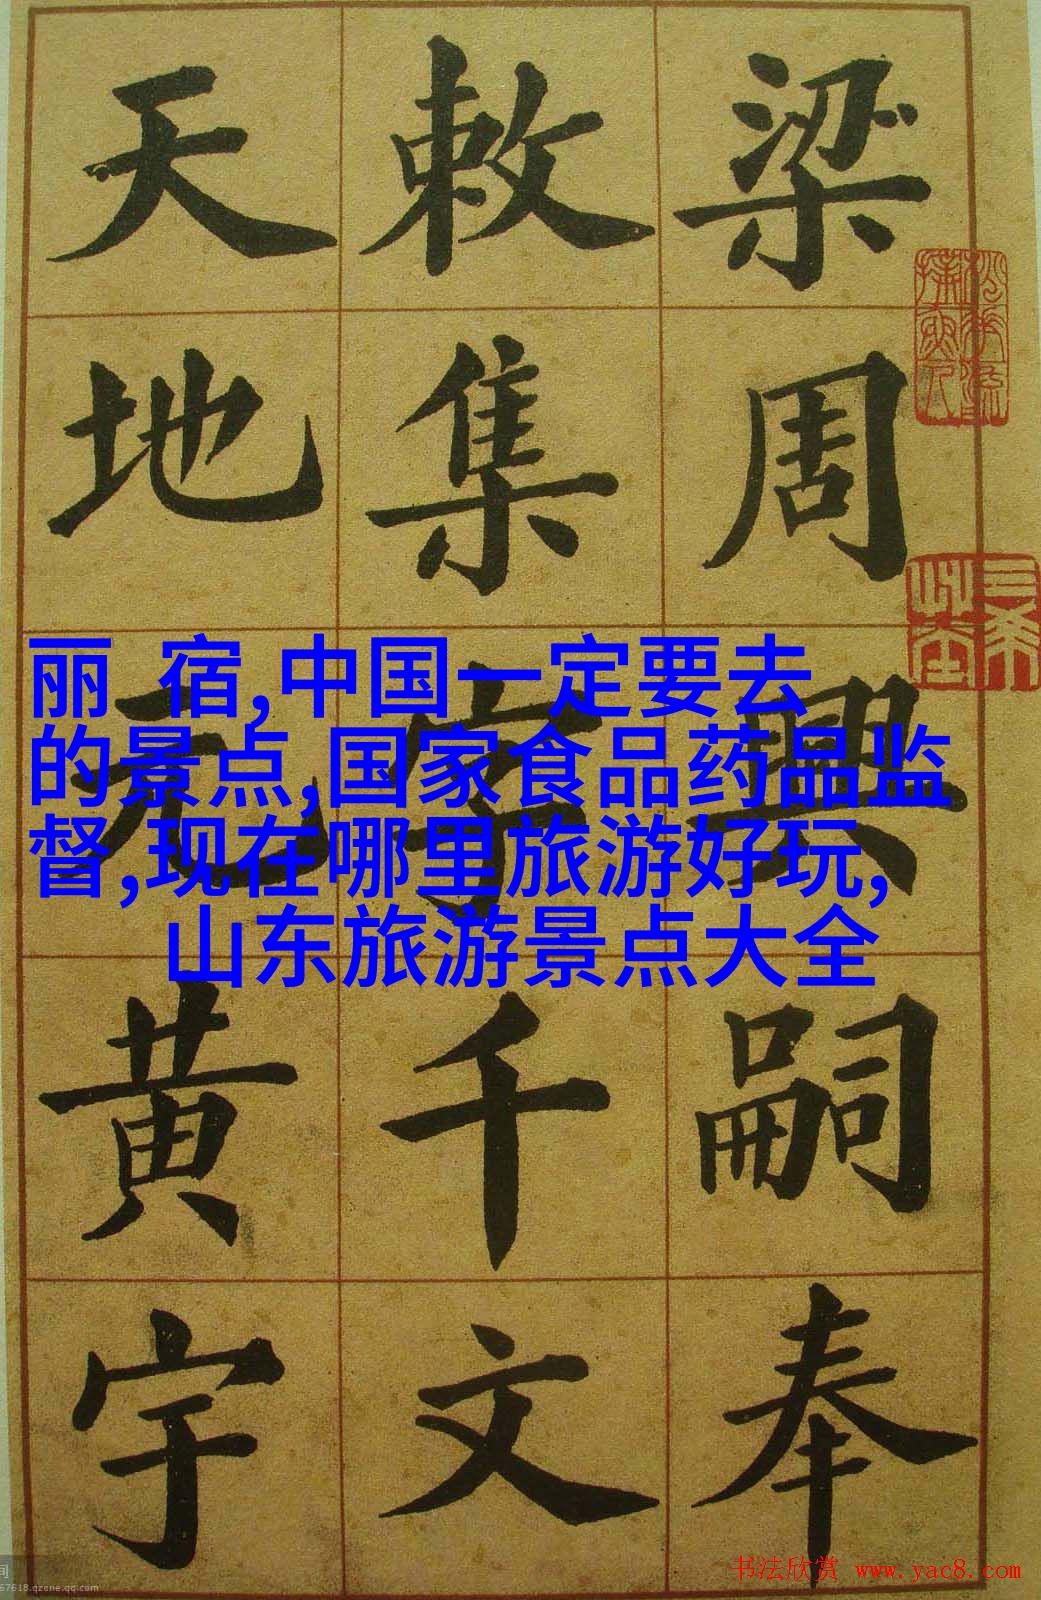 梁周興嗣奉
敕集字千文
天地元黄宇
丽 宿,中国一定要去
的景点,国家食品药品监
督,现在哪里旅游好玩,
山东旅游景点大全
书法欣赏 www.yac8.com
67618.qzone.qq.com